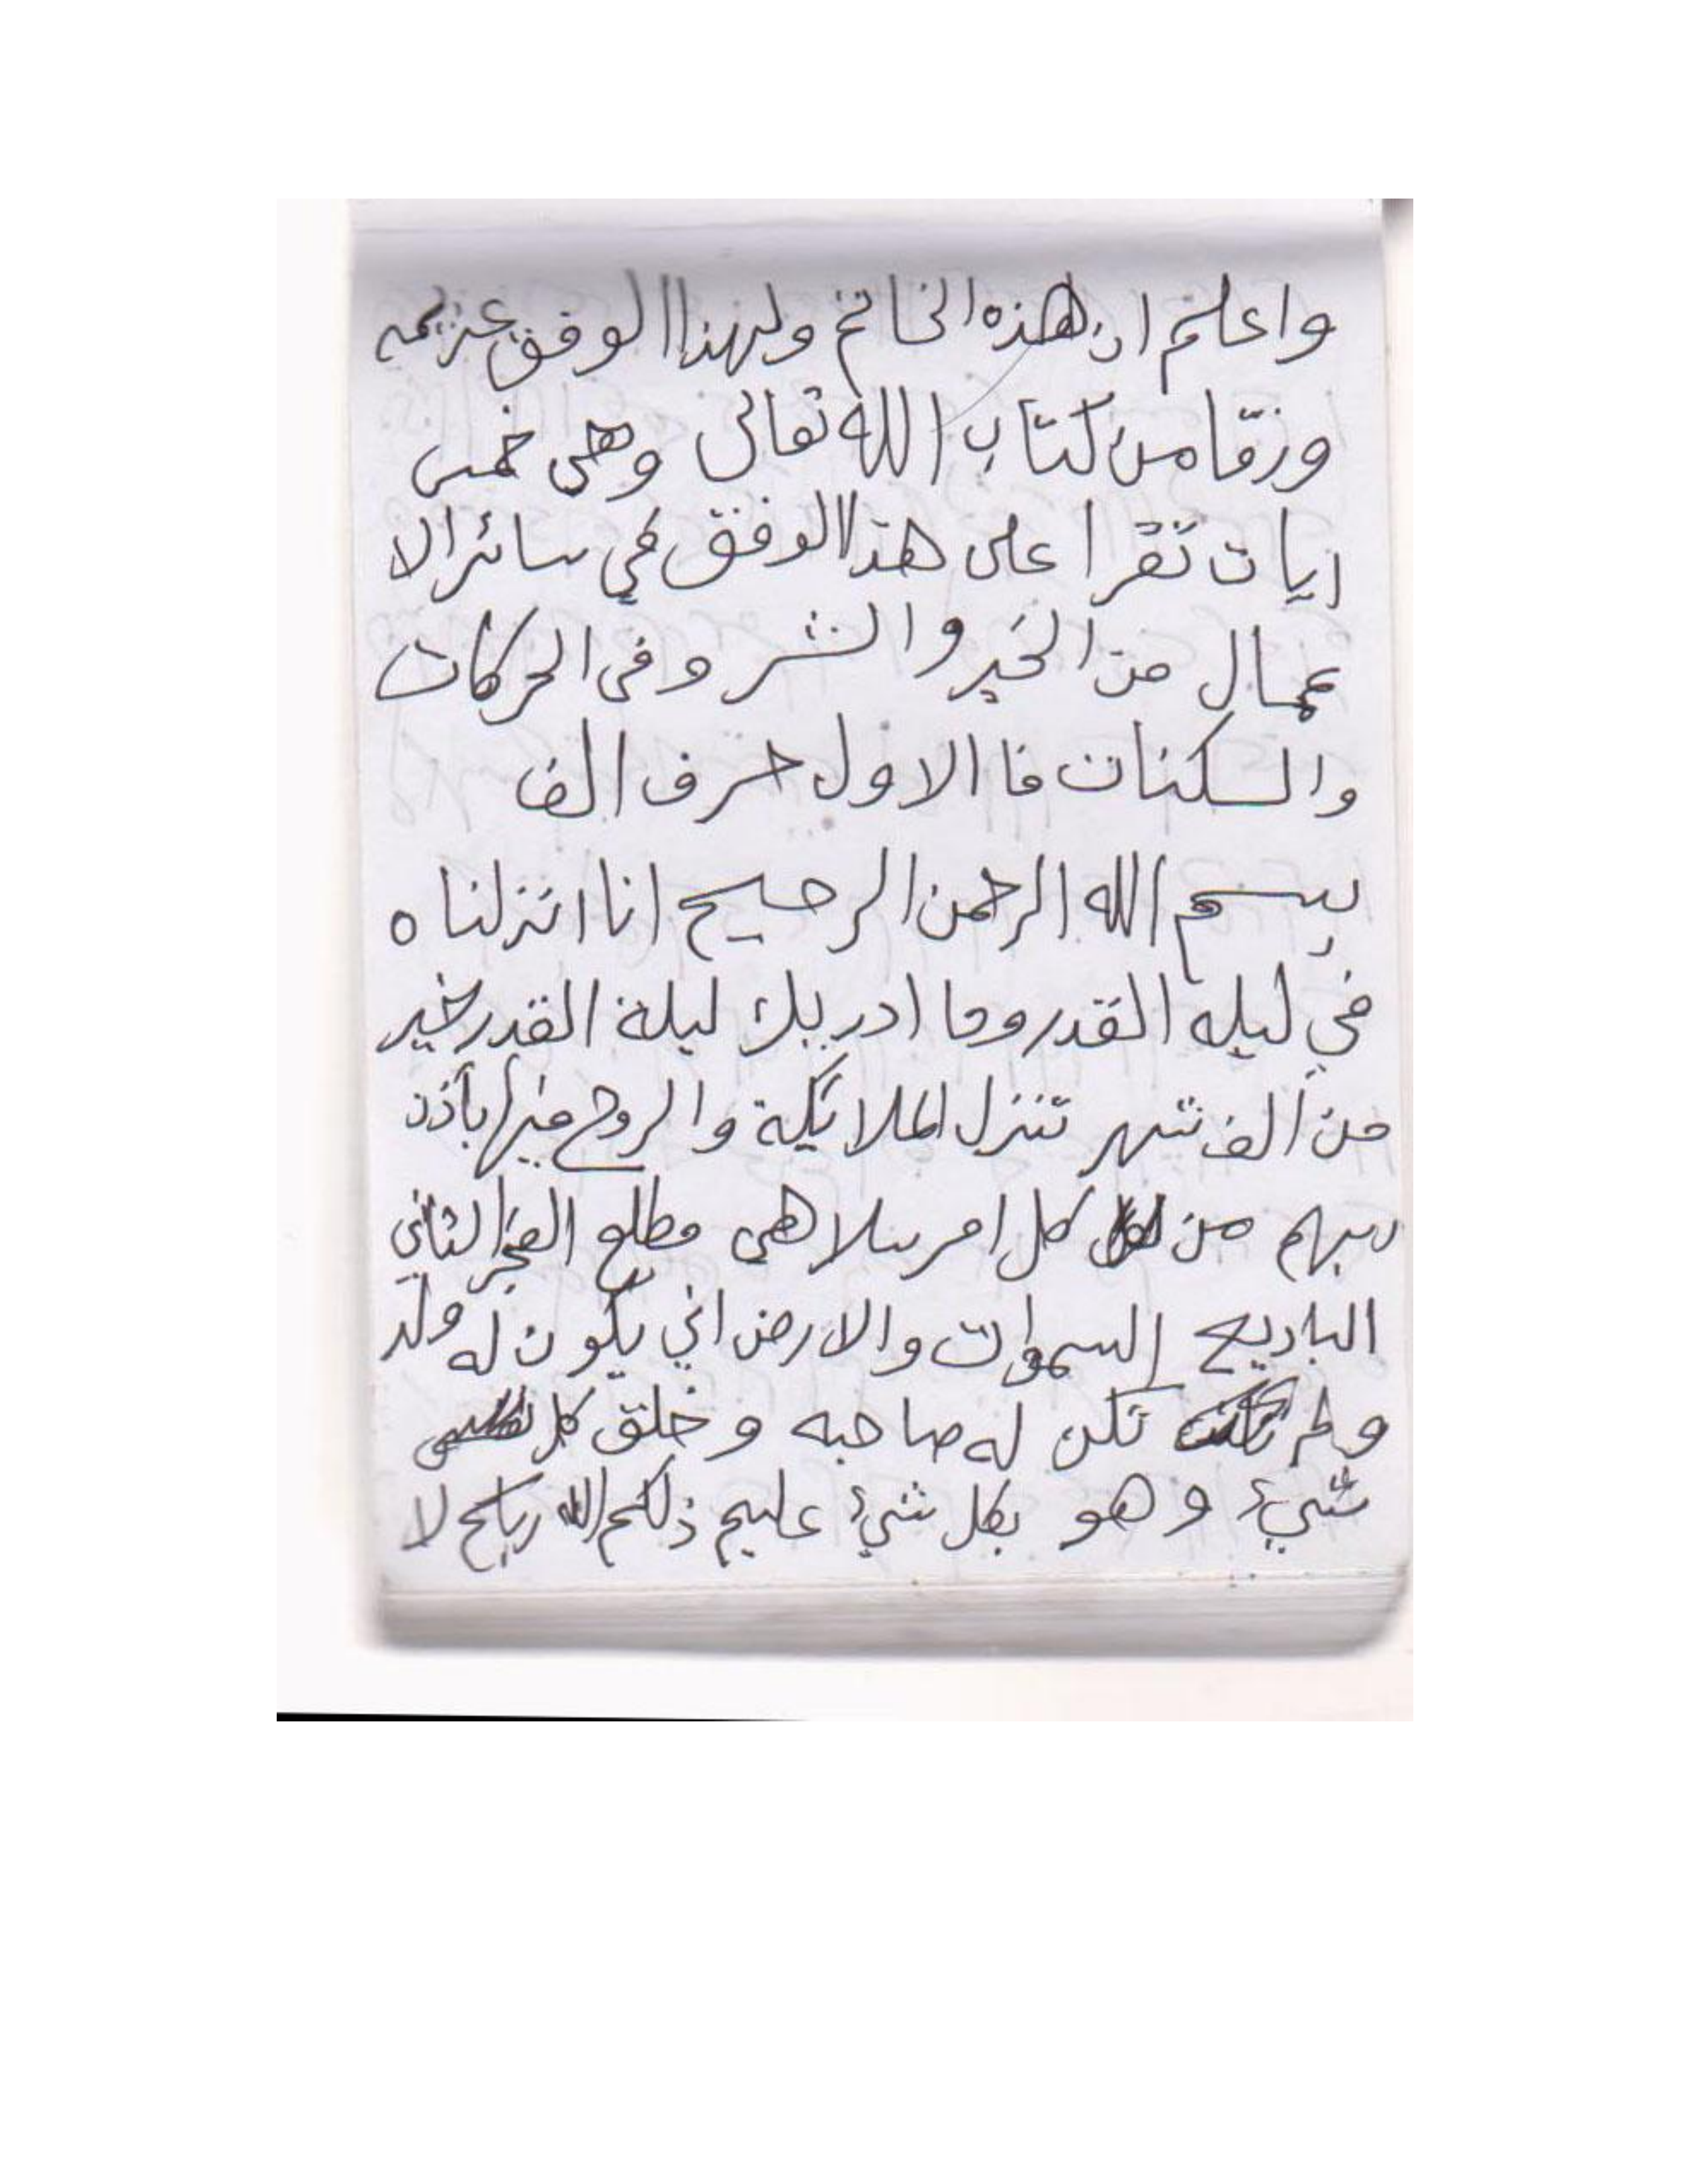 واعلم ان هذه الخاتم ولهذا الوفق عزيمه
ورقا من كتاب الله تعالى وهى خمس
ايات تقرا على هذا الوفق في سائر الا
عمال من الخير والشر وفى الحركات
والسكنات فا الاول حرف الف
بسم الله الرحمن الرحيم انا انزلنا ه
في ليله القدر وما ادريك ليلة القدر خير
من الف شهر تنزل الملائكة والروح فيها بأذن
ربهم من كل امر سلا هي مطلع الفجر الثاني
الباديع السموات والارض اني يكون له ولد
ولم تكن له صاحبه وخلق كل
شيء وهو بكل شيء عليم ذلكم الله ربكم لا